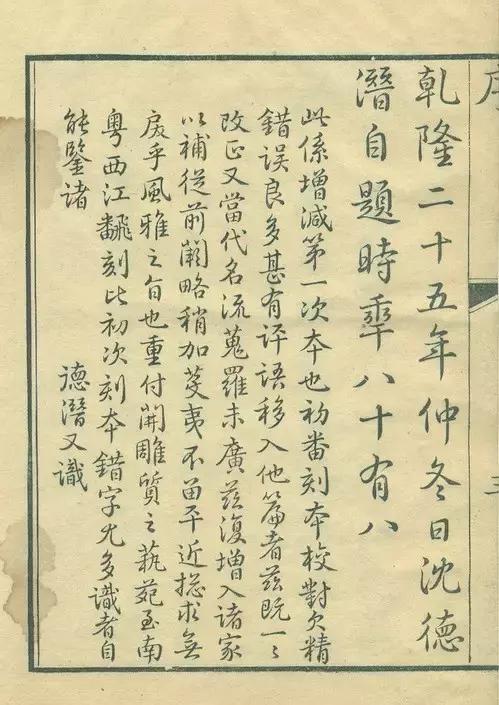 序
三
乾隆二十五年仲冬日沈德
潛自題時年八十有八
此係增減第一次本也初番刻本校對欠精
錯誤良多甚有評語移入他篇者茲既一〻
改正又當代名流蒐羅未廣茲復增入諸家
以補從前闕略稍加芟夷不留平近揔求無
戾乎風雅之旨也重付開雕質之藝苑至南
粵西江翻刻此初次刻本錯字尤多識者自
能鑒諸
德潛又識